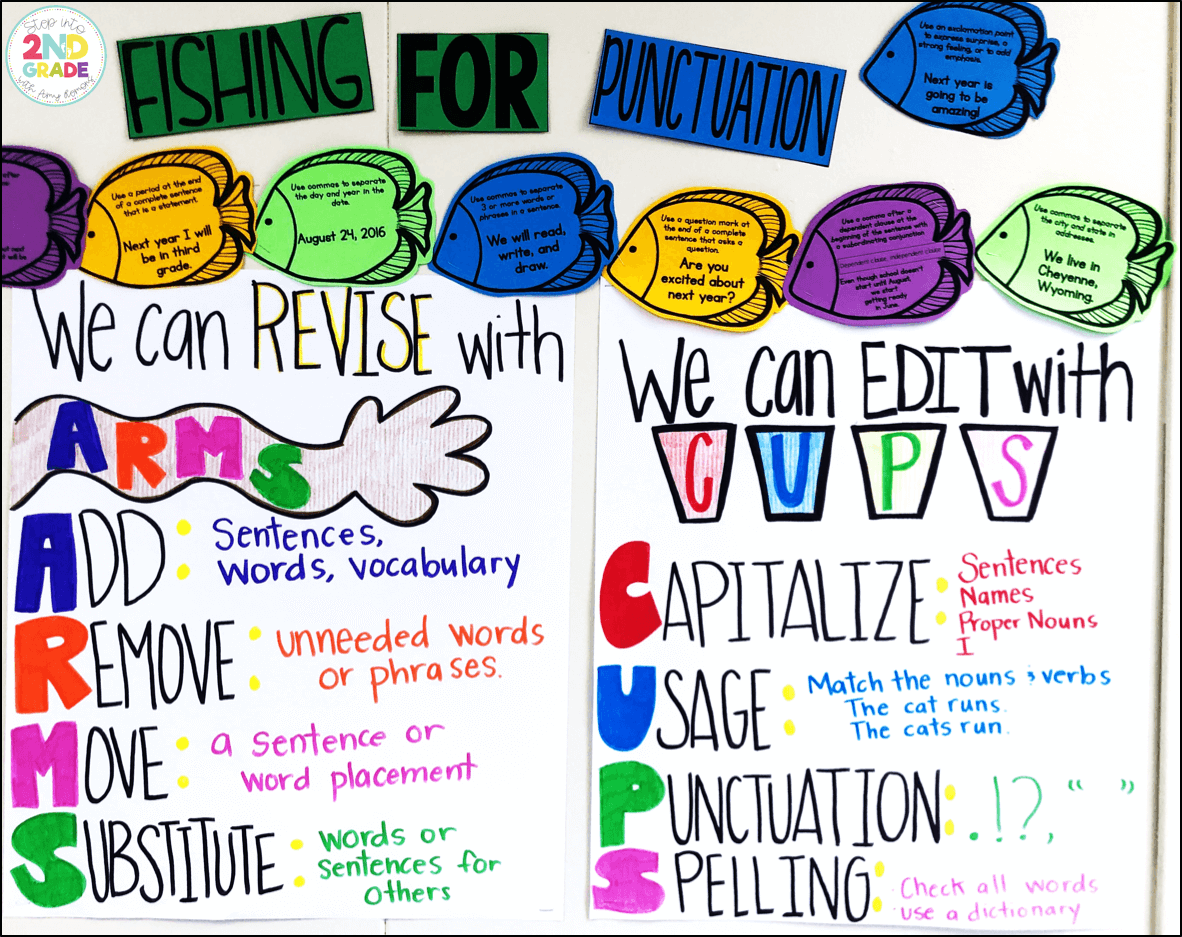 Step into
2ND
GRADE
with Amy Lemons
FISHING
FOR
PUNCTUATION
Use an exclamation point
to express surprise, a
strong feeling, or to add
emphasis.
Next year is
going to be
amazing!
after
Use a period at the end
of a complete sentence
that is a statement.
Next year I will
be in third
grade.
Use commas to separate
the day and year in the
date.
August 24, 2016
Use commas to separate
3 or more words or
phrases in a sentence.
We will read,
write, and
draw.
Use a question mark at
the end of a complete
sentence that asks a
question.
Are you
excited about
next year?
Use a comma after a
dependent clause at the
beginning of sentence with
a subordinating conjunction.
Dependent clause, independent clause.
Even though school doesn't
start until August,
we start
getting ready
in June.
Use commas to separate
the city and state in
addresses.
We live in
Cheyenne,
Wyoming.
next
will be
We can REVISE with
ARMS
ADD: Sentences,
words, vocabulary
REMOVE: unneeded words
or phrases.
MOVE: a sentence or
word placement
SUBSTITUTE: words or
sentences for
others
We can EDIT with
CUPS
CAPITALIZE: Sentences
Names
Proper Nouns
I
USAGE: Match the nouns & verbs
The cat runs.
The cats run.
PUNCTUATION: . ! ? , “ ”
SPELLING: Check all words
use a dictionary